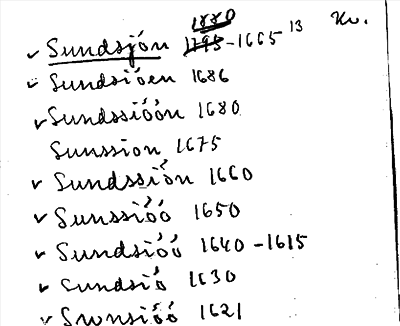 1880
✓ Sundsjön 1795-1665 13 Kv.
✓ Sundsiöen 1686
✓ Sundssióón 1680
Sunssion 1675
✓ Sundssiön 1660
✓ Sunssióó 1650
✓ Sundsióó 1640-1615
✓ Sundsió 1630
✓ Sunsióó 1621